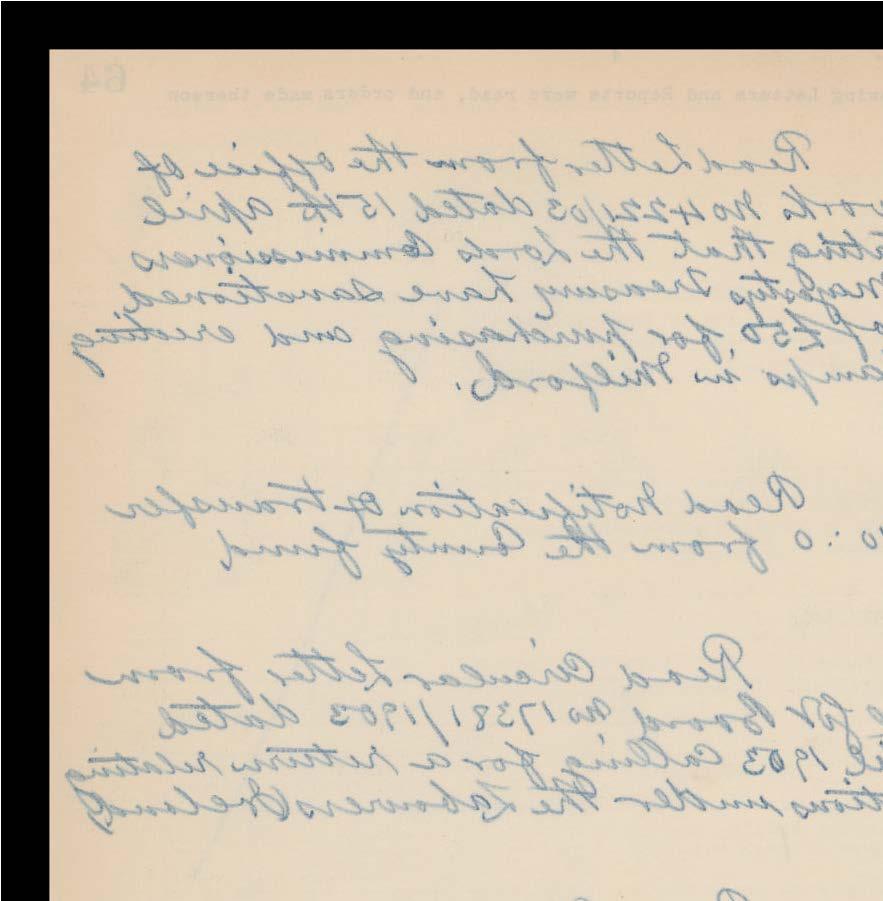 64
wing Letters and Reports were read, and orders made thereon
Read Letter from the office of
works No 4221/03 dated 15th April
ting that the Lords Commissioners
Majestys Treasury have sanctioned
of £50 for purchasing and erecting
amps in Milford.
Read Notification of transfer
10 : 0 from the County fund
Read Circular Letter from
Board No 17381/1903 dated
il 1903 Calling for a return relating
tions under the Labourers Ireland